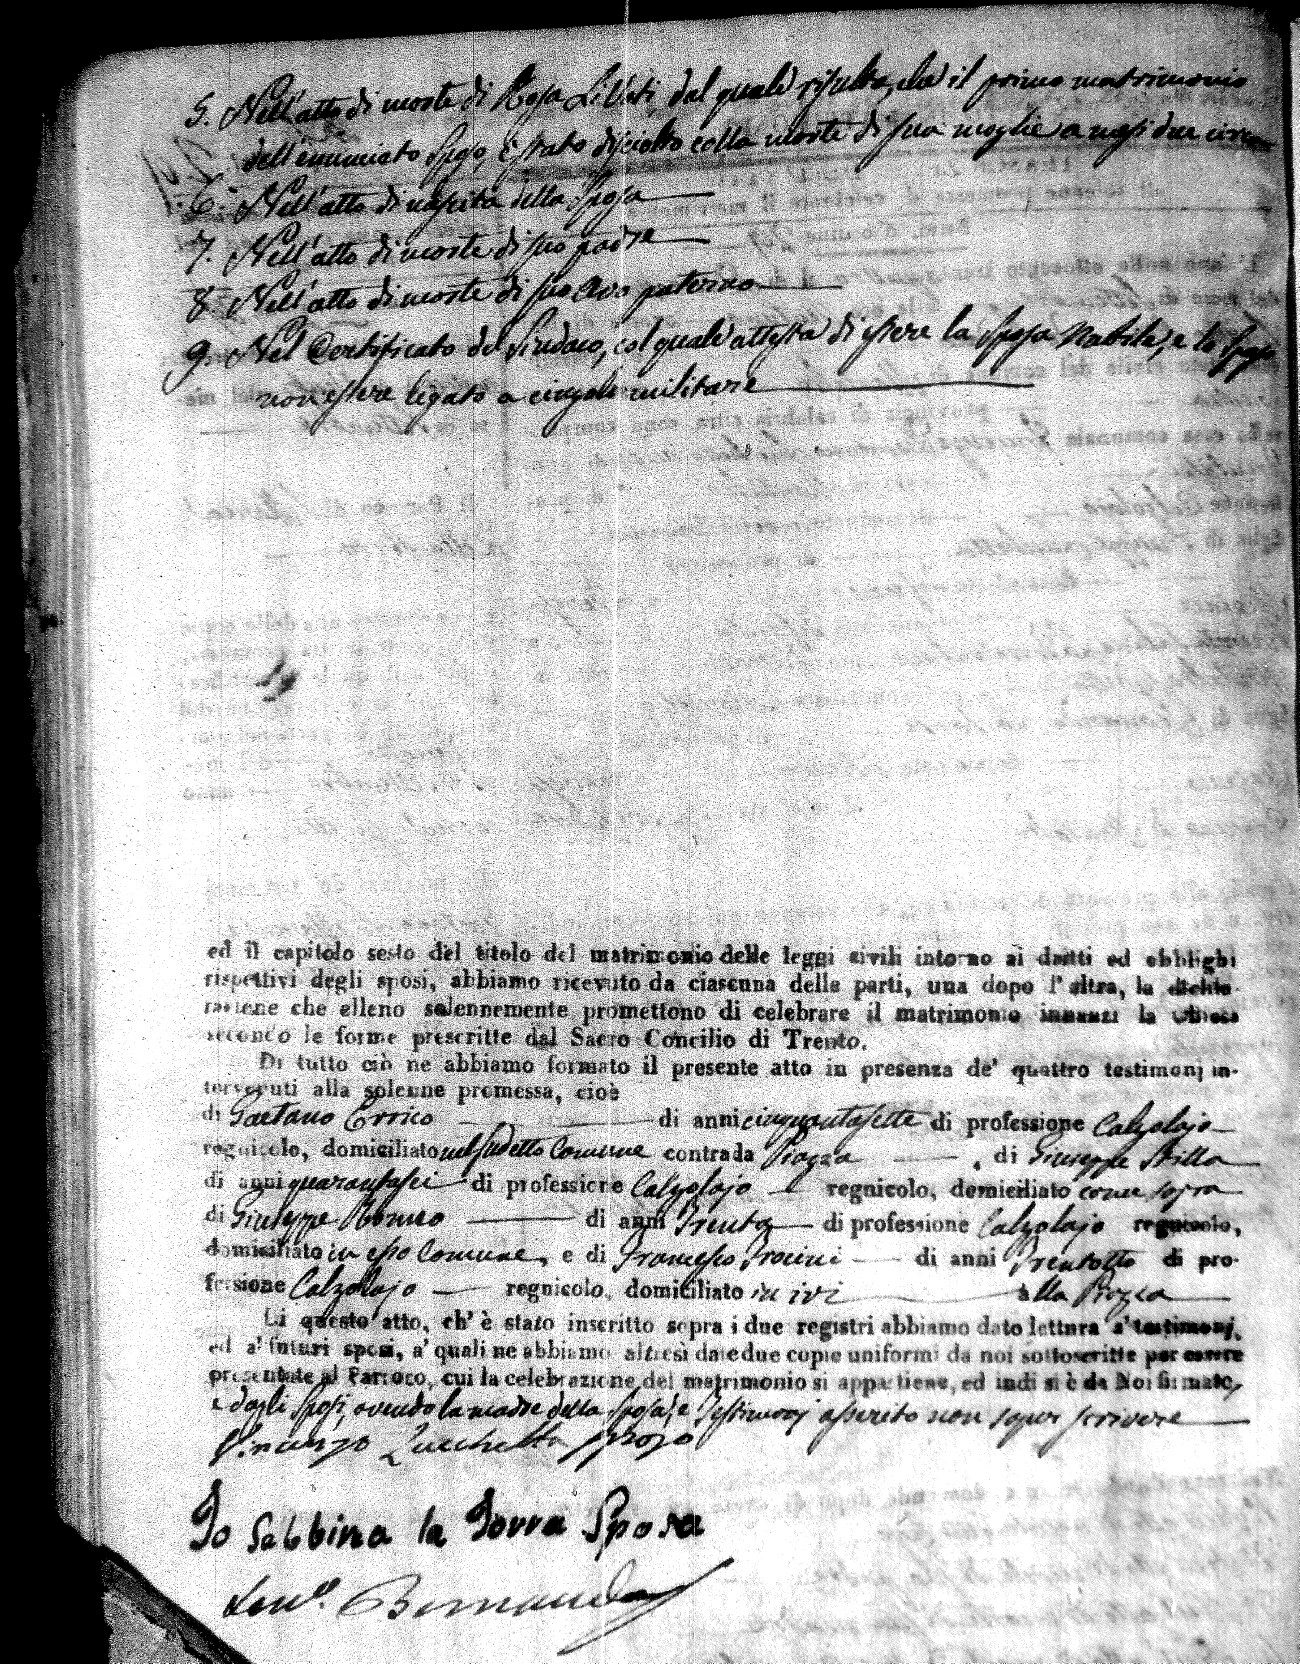 5. Nell'atto di morte di Rosa Liviti, dal quale risulta, che il primo matrimonio
dell'enunciato Sposo, è stato disciolto colla morte di sua moglie a mesi due
6. Nell'atto di nascita della Sposa
7. Nell'atto di morte di suo padre
8. Nell'atto di morte di suo Avo paterno
9. Nel Certificato del Sindaco, col quale attesta di essere la Sposa Nubile, e lo Sposo
non essere legato a cingolo militare
ed il capitolo sesto del titolo del matrimonio delle leggi civili intorno ai dritti ed obblighi
rispettivi degli sposi, abbiamo ricevuto da ciascuna delle parti, una dopo l'altra, la dichia-
razione che elleno solennemente promettono di celebrare il matrimonio innanzi la Chiesa
secondo le forme prescritte dal Sacro Concilio di Trento.
Di tutto ciò ne abbiamo formato il presente atto in presenza de' quattro testimonj in-
tervenuti alla solenne promessa, cioè
di Gaetano Errico di anni cinquantasette di professione Calzolajo
regnicolo, domiciliato nel sudetto Comune contrada Piazza , di Giuseppe Stilla
di anni quarantasei di professione Calzolajo regnicolo, domiciliato come sopra
di Giuseppe Romeo di anni Trenta di professione Calzolajo regnicolo,
domiciliato in esso Comune, e di Francesco Procini di anni Trentotto di pro-
fessione Calzolajo regnicolo, domiciliato in ivi alla Piazza
Di questo atto, ch'è stato inscritto sopra i due registri abbiamo dato lettura a' testimonj,
ed a' futuri sposi, a' quali ne abbiamo altresì date due copie uniformi da noi sottoscritte per essere
presentate al Parroco, cui la celebrazione del matrimonio si appartiene, ed indi si è da Noi firmato,
e dagli Sposi, avendo la madre della Sposa, e Testimonj asserito non saper scrivere
Vincenzo Zucchetta sposo
Io Sabbina la Torra Sposa